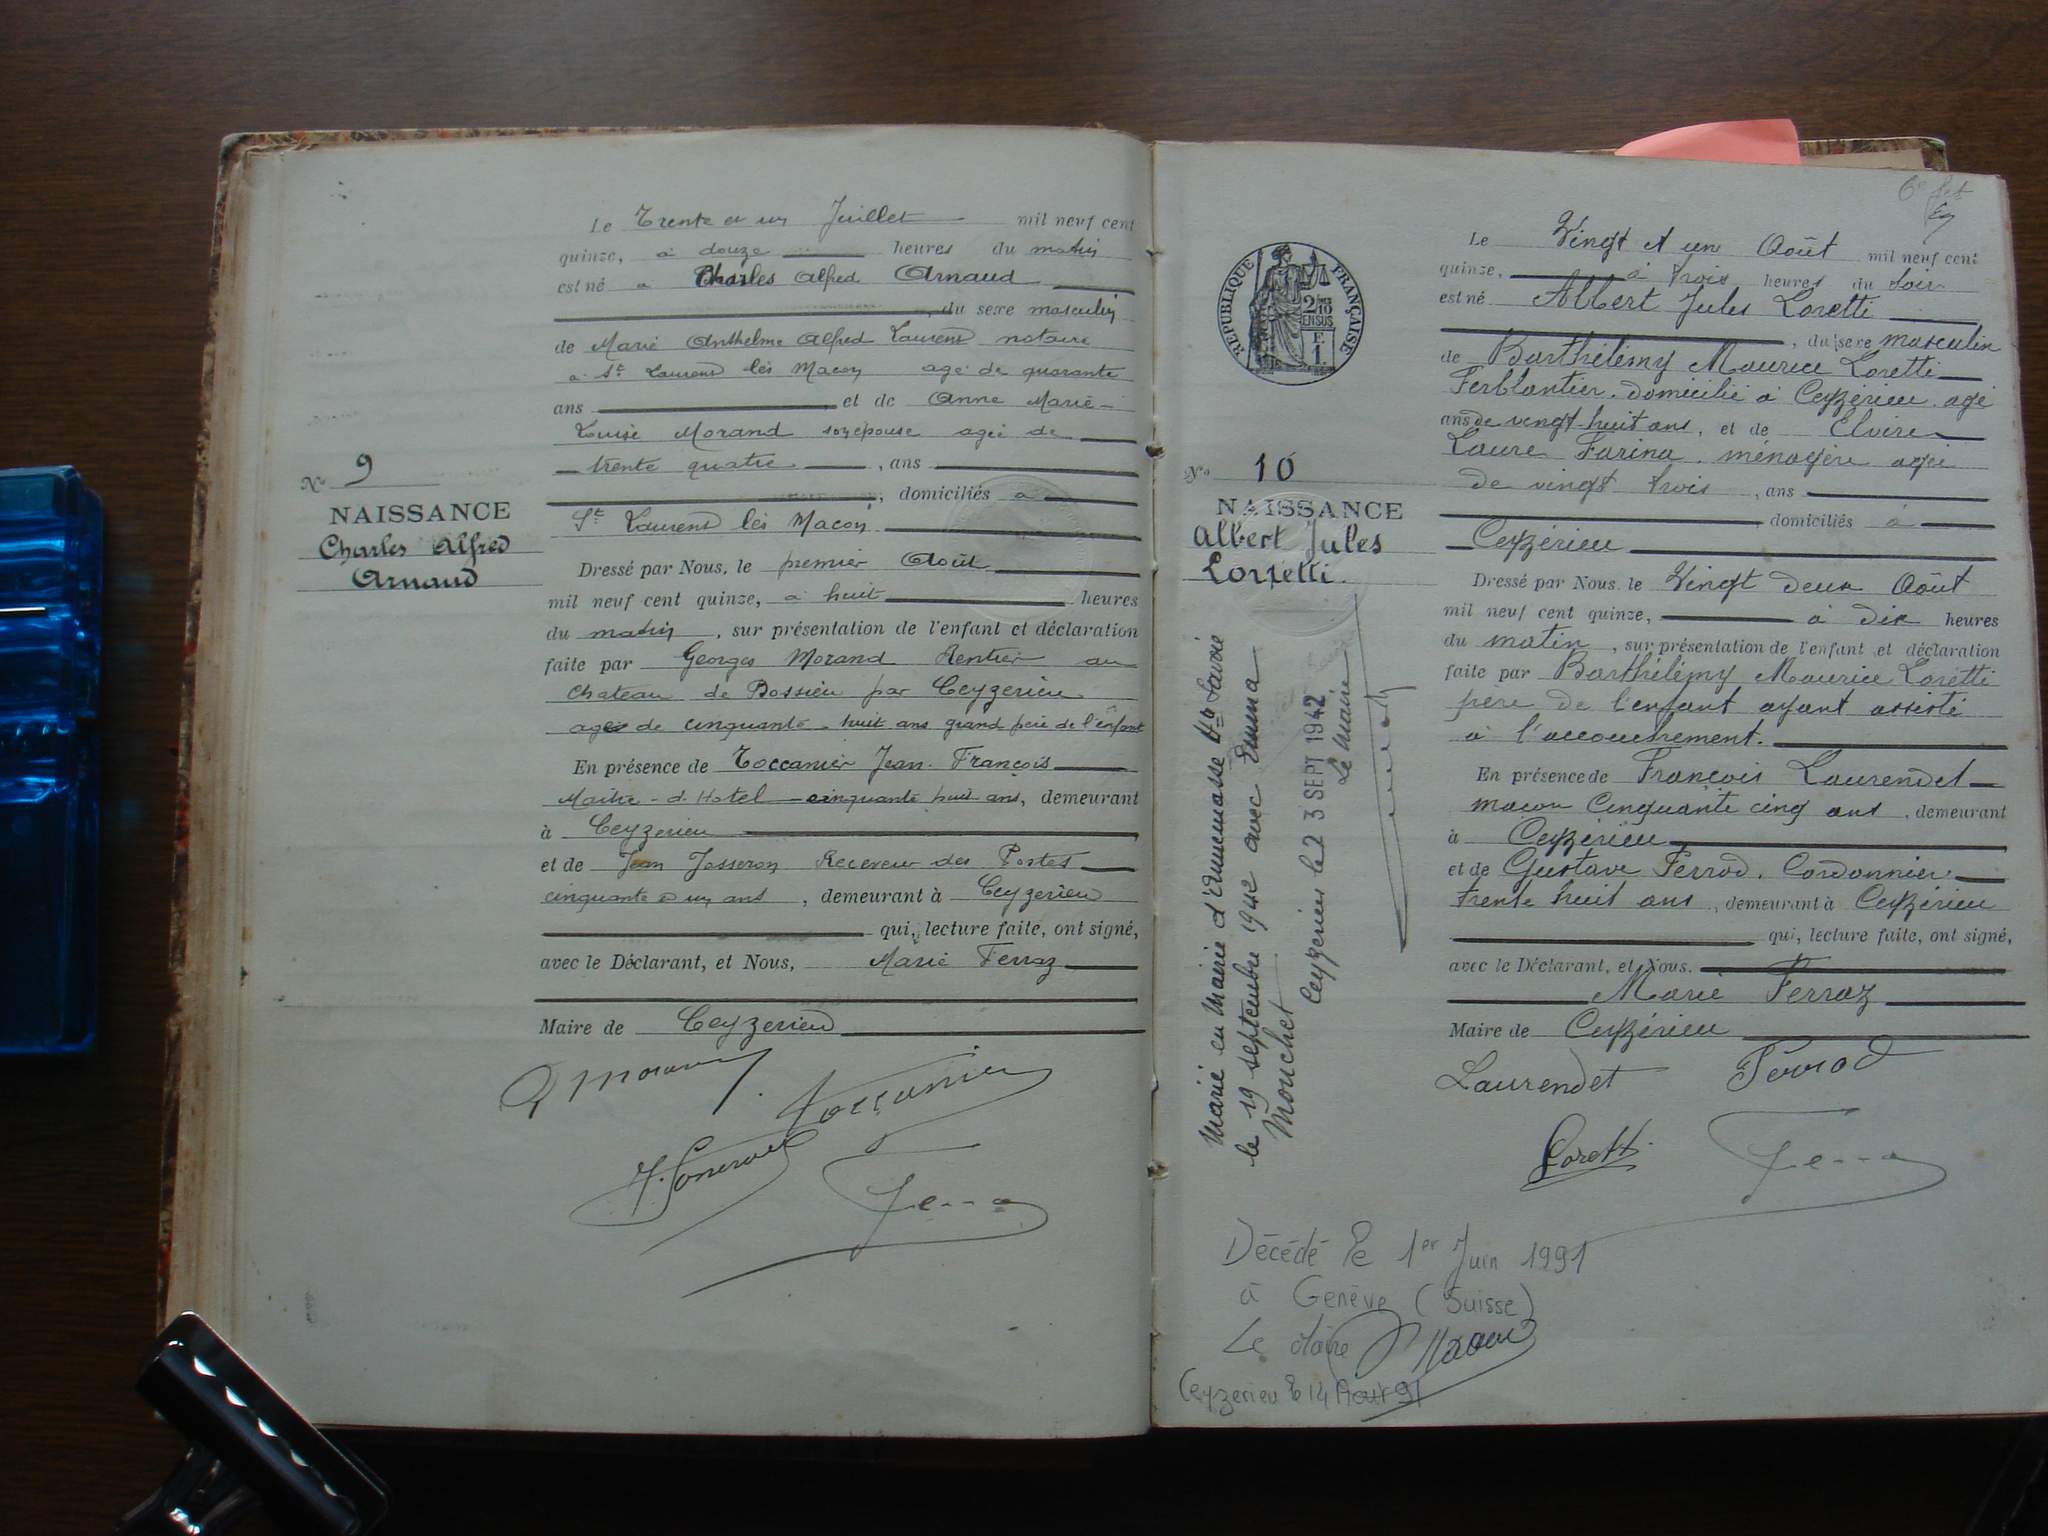 Le Trente et un Juillet mil neuf cent
quinze, à douze heures du matin
est né à Charles Alfred Arnaud
, du sexe masculin
de Marie Anthelme Alfred Laurend notaire
à St Laurend lès Macon agé de quarante
ans et de Anne Marie
Luise Morand son épouse agée de
trente quatre , ans
, domiciliés à
St Laurend lès Macon
No 9
NAISSANCE
Charles Alfred
Arnaud
Dressé par Nous, le premier Août
mil neuf cent quinze, à huit heures
du matin , sur présentation de l'enfant et déclaration
faite par Georges Morand Rentier au
Chateau de Bossieu par Ceyzerieu
agé de cinquante-huit ans grand père de l'enfant
En présence de Toccanier Jean-François
Maître-d-Hotel cinquante huit ans, demeurant
à Ceyzerieu
et de Jean Josseron Receveur des Postes
cinquante et un ans , demeurant à Ceyzerieu
qui, lecture faite, ont signé,
avec le Déclarant, et Nous, Marie Ferraz
Maire de Ceyzerieu
G Morand
Toccanier
Ferraz
RÉPUBLIQUE FRANÇAISE
2/10
EN SUS
F.
1.
Le Vingt et un Août mil neuf cent
quinze, à trois heures du soir
est né Albert Jules Loretti
, du sexe masculin
de Barthélémy Maurice Loretti
Ferblantier, domicilié à Ceyzérieu, agé
ans de vingt-huit ans, et de Elvire
Laure Farina, ménagère agée
de vingt trois , ans
domiciliés à
Ceyzérieu
No 10
NAISSANCE
Albert Jules
Loretti.
Dressé par Nous, le Vingt deux Août
mil neuf cent quinze, à dix heures
du matin, sur présentation de l'enfant et déclaration
faite par Barthélémy Maurice Loretti
père de l'enfant ayant assisté
à l'accouchement.
En présence de François Laurendet
maçon Cinquante cinq ans , demeurant
à Ceyzérieu
et de Gustave Perrod, Cordonnier
trente huit ans , demeurant à Ceyzérieu
qui, lecture faite, ont signé,
avec le Déclarant, et Nous,
Marie Ferraz
Maire de Ceyzérieu
Laurendet Perrod
Loretti
Ferraz
Marié en Mairie d'Annemasse Hte Savoie
le 19 septembre 1942 avec Emma
Mouchet
Ceyzerieu le 23 SEPT 1942
Le Maire
Décédé le 1er Juin 1991
à Genève (Suisse)
Le Maire
Ceyzerieu le 14 Août 91